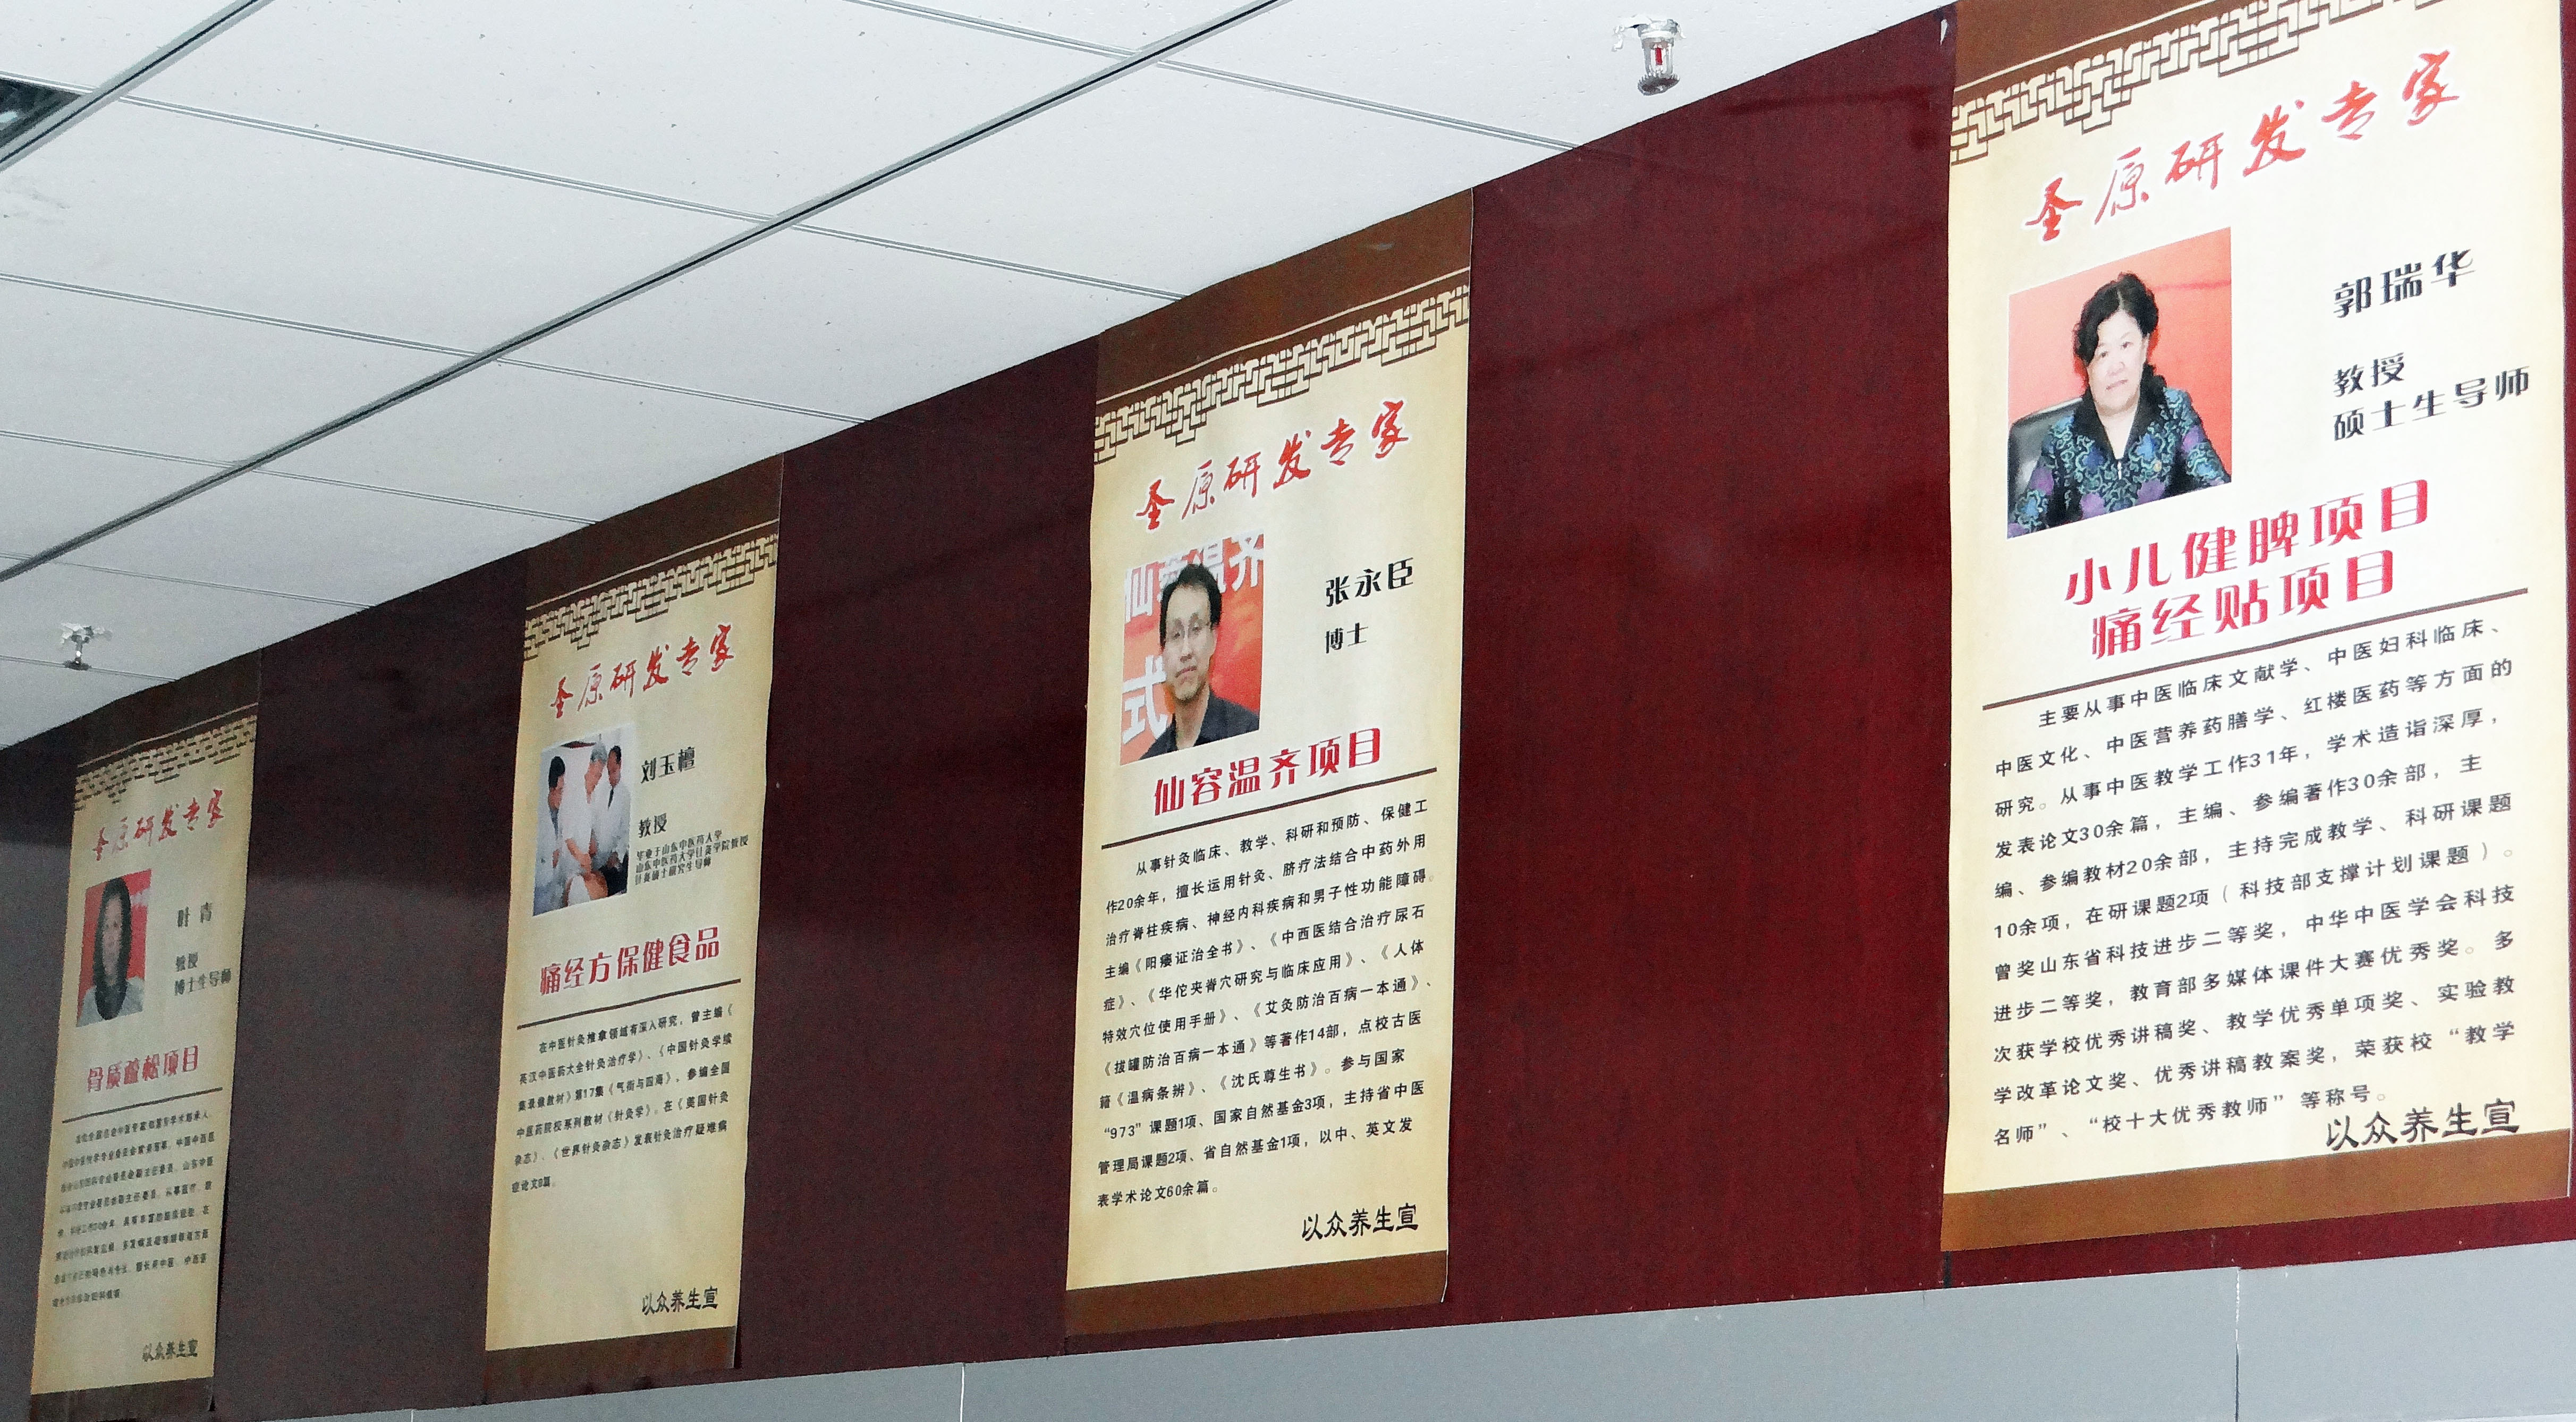 圣原研发专家
叶青
教授
博士生导师
骨质疏松项目
以众养生宣
圣原研发专家
刘玉檀
教授
毕业于山东中医药大学
山东中医药大学针灸学院教授
针灸硕士研究生导师
痛经方保健食品
在中医针灸推拿领域有深入研究，曾主编《
英汉中医病大全针灸治疗学》、《中国针灸学续
集录像教材》第17集《气街与四海》，参编全国
中医药院校系列教材《针灸学》。在《美国针灸
杂志》、《世界针灸杂志》发表针灸治疗疑难病
症论文8篇。
以众养生宣
圣原研发专家
仙容温齐
式
张永臣
博士
仙容温齐项目
从事针灸临床、教学、科研和预防、保健工
作20余年，擅长运用针灸、脐疗法结合中药外用
治疗脊柱疾病、神经内科疾病和男子性功能障碍。
主编《阳痿证治全书》、《中西医结合治疗尿石
症》、《华佗夹脊穴研究与临床应用》、《人体
特效穴位使用手册》、《艾灸防治百病一本通》、
《拔罐防治百病一本通》等著作14部，点校古医
籍《温病条辨》、《沈氏尊生书》。参与国家
“973”课题1项、国家自然基金3项，主持省中医
管理局课题2项、省自然基金1项，以中、英文发
表学术论文60余篇。
以众养生宣
圣原研发专家
郭瑞华
教授
硕士生导师
小儿健脾项目
痛经贴项目
主要从事中医临床文献学、中医妇科临床、
中医文化、中医营养药膳学、红楼医药等方面的
研究。从事中医教学工作31年，学术造诣深厚，
发表论文30余篇，主编、参编著作30余部，主
编、参编教材20余部，主持完成教学、科研课题
10余项，在研课题2项（科技部支撑计划课题）。
曾奖山东省科技进步二等奖，中华中医学会科技
进步二等奖，教育部多媒体课件大赛优秀奖。多
次获学校优秀讲稿奖、教学优秀单项奖、实验教
学改革论文奖、优秀讲稿教案奖，荣获校“教学
名师”、“校十大优秀教师”等称号。
以众养生宣